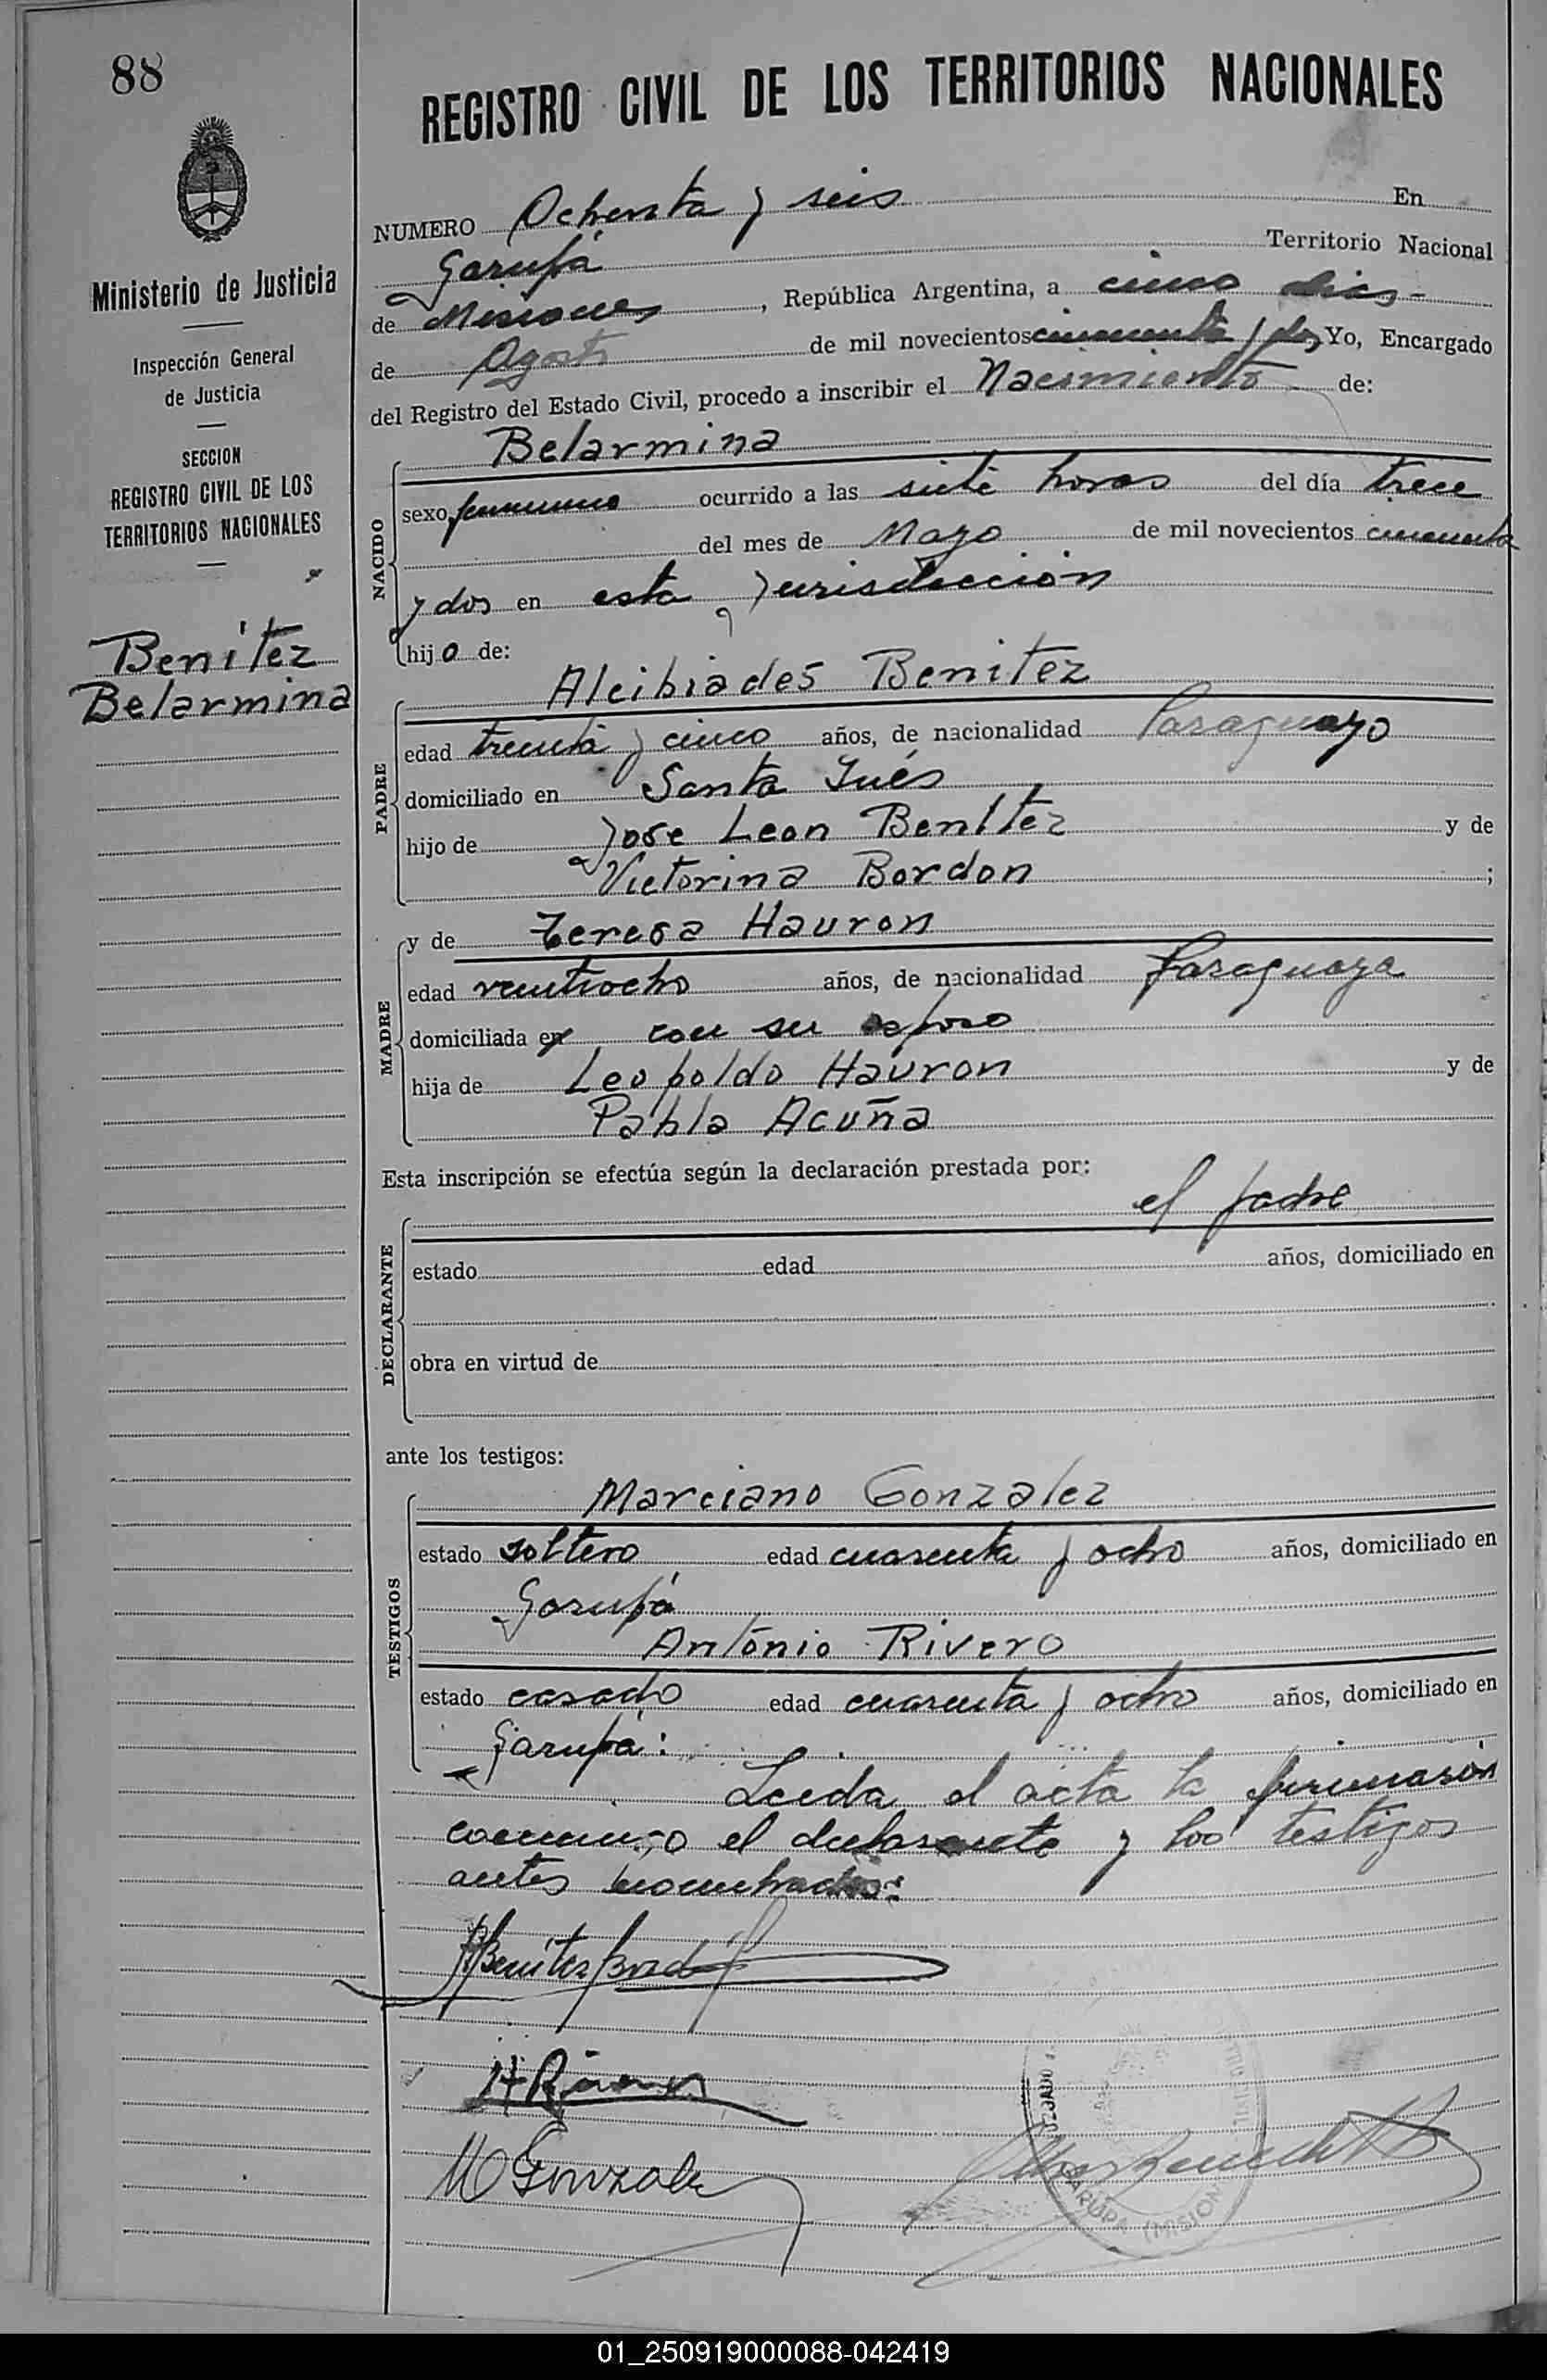 88
Ministerio de Justicia
Inspección General
de Justicia
SECCION
REGISTRO CIVIL DE LOS
TERRITORIOS NACIONALES
Benítez
Belarmina
REGISTRO CIVIL DE LOS TERRITORIOS NACIONALES
NUMERO Ochenta y seis En
Garupá Territorio Nacional
de Misiones, República Argentina, a cinco dias -
de Agosto de mil novecientos cincuenta y dos Yo, Encargado
del Registro del Estado Civil, procedo a inscribir el Nacimiento de:
NACIDO
Belarmina
sexo femenino ocurrido a las siete horas del día trece
del mes de Mayo de mil novecientos cincuenta
y dos en esta jurisdicción
hija de:
PADRE
Alcibiades Benitez
edad treinta y cinco años, de nacionalidad Paraguayo
domiciliado en Santa Inés
hijo de Jose Leon Benitez y de
Victorina Bordon ;
MADRE
y de Teresa Hauron
edad veintiocho años, de nacionalidad Paraguaya
domiciliada en con su esposo
hija de Leopoldo Hauron y de
Pabla Acuña
Esta inscripción se efectúa según la declaración prestada por:
DECLARANTE
el padre
estado edad años, domiciliado en
obra en virtud de
ante los testigos:
TESTIGOS
Marciano Gonzalez
estado soltero edad cuarenta y ocho años, domiciliado en
Garupá
Antonio Rivero
estado casado edad cuarenta y ocho años, domiciliado en
Garupá:
Leida el acta la firmaron
conmigo el declarante y los testigos
antes nombrados:
ABenítez Bord
M Gonzalez
JUZGADO
GARUPA (MISION
01_250919000088-042419